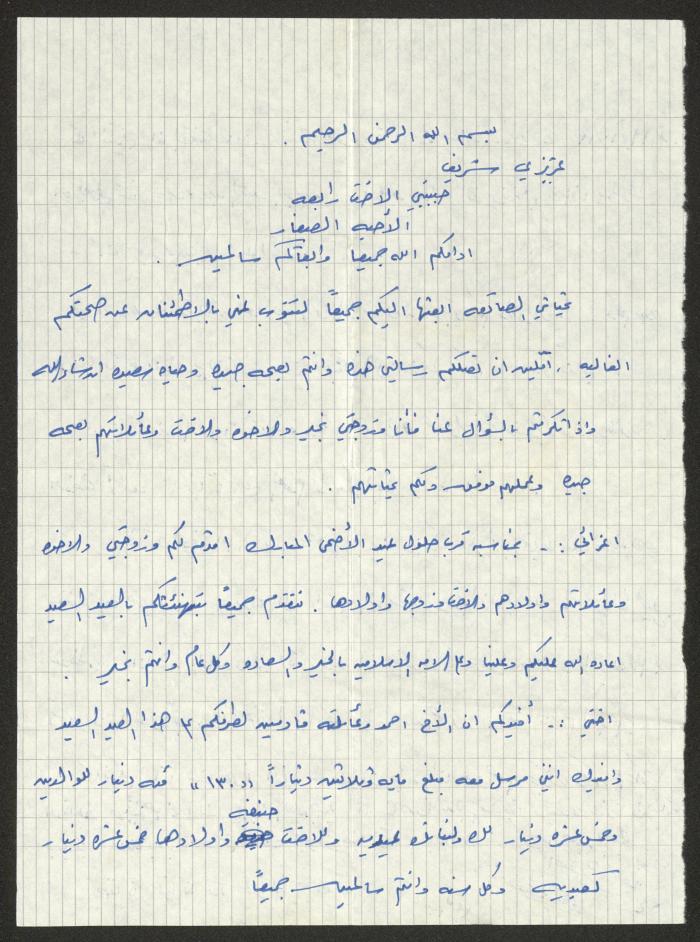 بسم الله الرحمن الرحيم .
عزيزي شريف
حبيبتي الاخت رابعه
الأحبه الصغار
ادامكم الله جميعا وابقاكم سالمين .
تحياتي الصادقه ابعثها اليكم جميعاً لتنوب عني بالاطمئنان عن صحتكم
الغاليه . آملين ان تصلكم رسالتي هذه وانتم بصحه جيده وحياه سعيده انشاء الله
واذا تكرمتم بالسؤال عنا فأنا وزوجتي بخير والاخوه والاخت وعائلاتهم بصحه
جيده وعملهم موفق ولكم تحياتهم .
اعزائي :- بمناسبه قرب حلول عيد الأضحى المبارك اقدم لكم وزوجتي والاخوه
وعائلاتهم واولادهم والاخت وزوجها واولادها . نتقدم جميعاً بتهنئتكم بالعيد السعيد
اعاده الله عليكم وعلينا وعلى الامه الاسلاميه بالخير والسعاده وكل عام وانتم بخير .
اختي :- أفيدكم ان الأخ احمد وعائلته قادمين لطرفكم في هذا العيد السعيد
وافيدك انني مرسل معه مبلغ مايه وثلاثين ديناراً "١٣٠" دينار للوالدين
وخمس عشره دينار لك ولبناتك عيديه وللاخت حنيفه واولادها خمس عشره دينار
كعيديه وكل سنه وانتم سالمين جميعاً